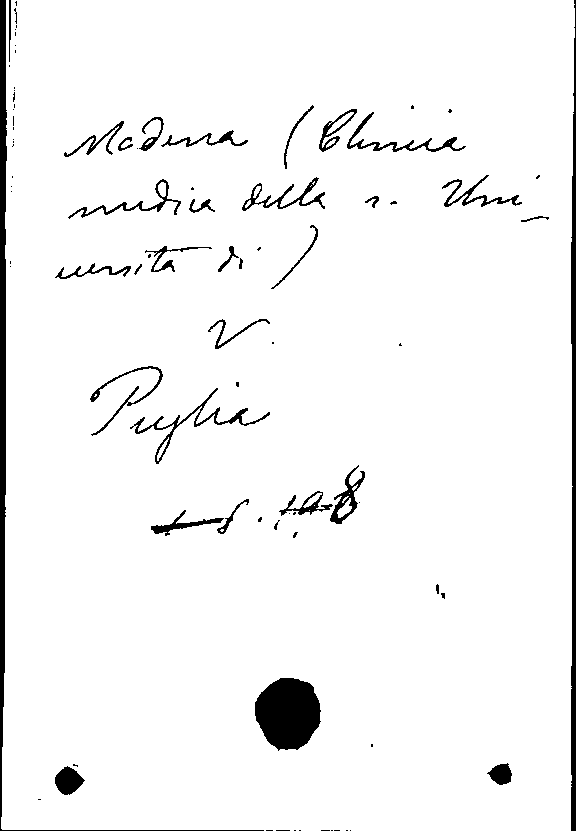 Modena (Clinica
medica della r. Uni-
versità di)
V.
Puglia